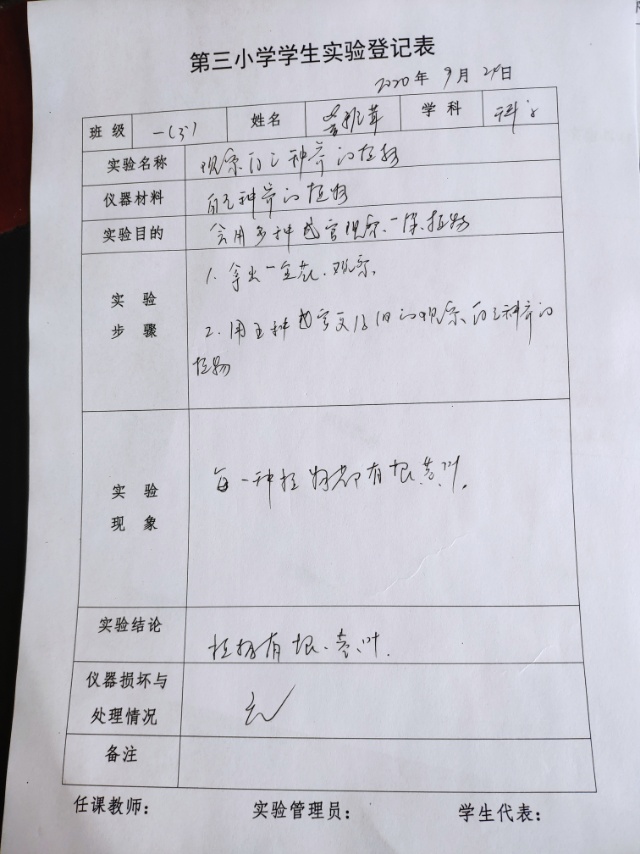 第三小学学生实验登记表
2020年9月2 日
班级 一(3) 姓名 学科 科学
实验名称 观察自己种养的植物
仪器材料 自己种养的植物
实验目的 会用多种感官观察一株植物
实验步骤 1.拿出一盆花,观察。
2.用五种感官 的观察自己种养的
植物
实验现象 每一种植物都有根、茎、叶。
实验结论 植物有根、茎、叶.
仪器损坏与处理情况 无
备注
任课教师: 实验管理员: 学生代表: